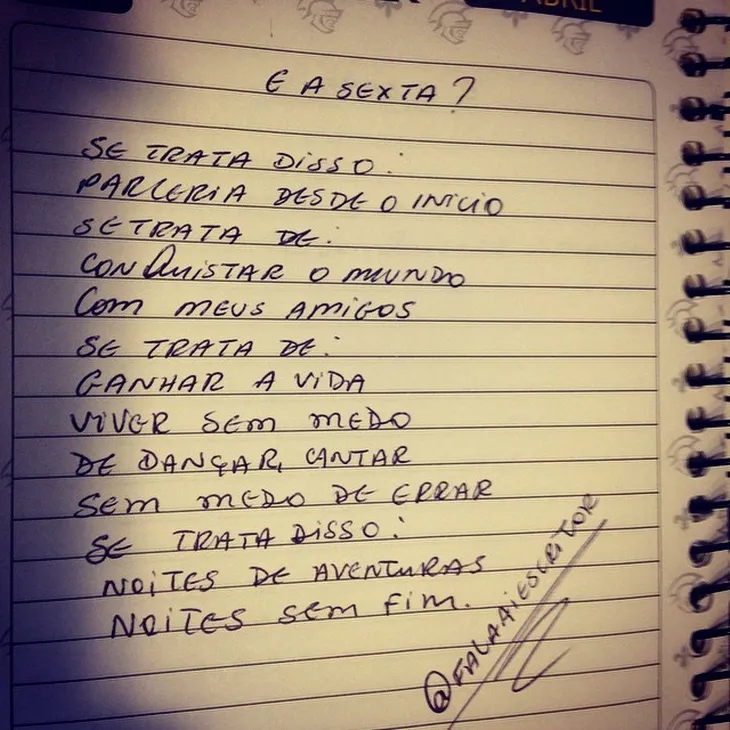 ABRIL
E A SEXTA?
SE TRATA DISSO:
PARCERIA DESDE O INICIO
SE TRATA DE:
CONQUISTAR O MUNDO
COM MEUS AMIGOS
SE TRATA DE:
GANHAR A VIDA
VIVER SEM MEDO
DE DANÇAR, CANTAR
SEM MEDO DE ERRAR
SE TRATA DISSO:
NOITES DE AVENTURAS
NOITES SEM FIM.
@FALAAIESCRITOR